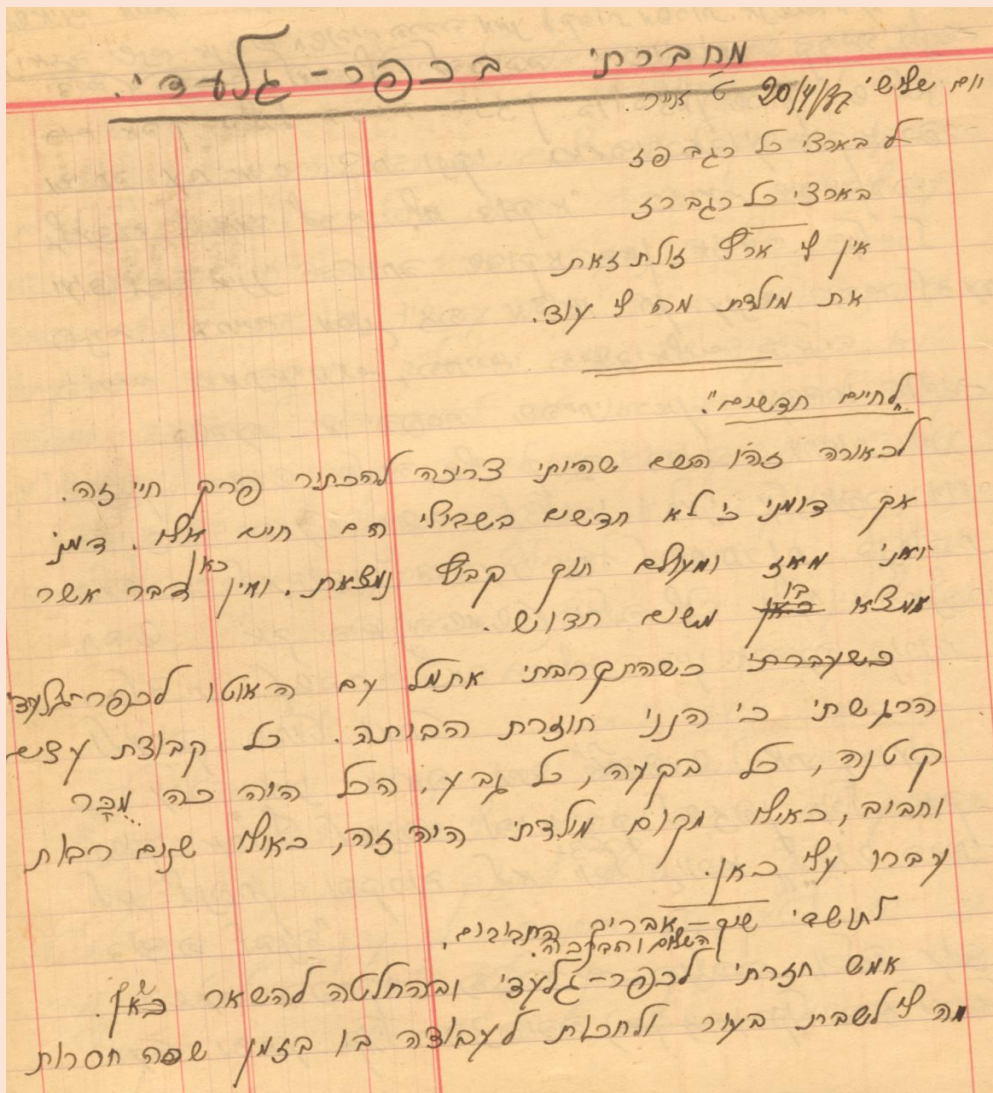 מחברתי בכפר-גלעדי.
יום שלישי 20/4/37 ט אייר.
בארצי כל רגב פז
בארצי כל רגב רז
אין לי ארץ זולת זאת
את מולדת מה לי עוד.
"לחיים חדשים".
לכאורה זהו השם שהייתי צריכה להכתיר פרק חיי זה.
אך דומני כי לא חדשים בשבילי הם חיים אלו. דומני
ואני מאז ומעולם תוך קבוץ נמצאת. ואין כאן דבר אשר
אמצא כאן בו משום חדוש.
כשעברתי כשהתקרבתי אתמול עם האוטו לכפר-גלעדי
הרגשתי כי הנני חוזרת הביתה. כל קבוצת עצים
קטנה, כל בקעה, כל גבע, הכל היה כה מֻכָּר
וחביב, כאילו מקום מולדתי היה זה, כאילו שנים רבות
עברו עלי כאן.
לתושבי שיך-אבריק החביבים,
השלום והברכה.
אמש חזרתי לכפר-גלעדי ובהחלטה להשאר כאן.
מה לי לשבת בעיר ולחכות לעבודה בו בזמן שפה חסרות